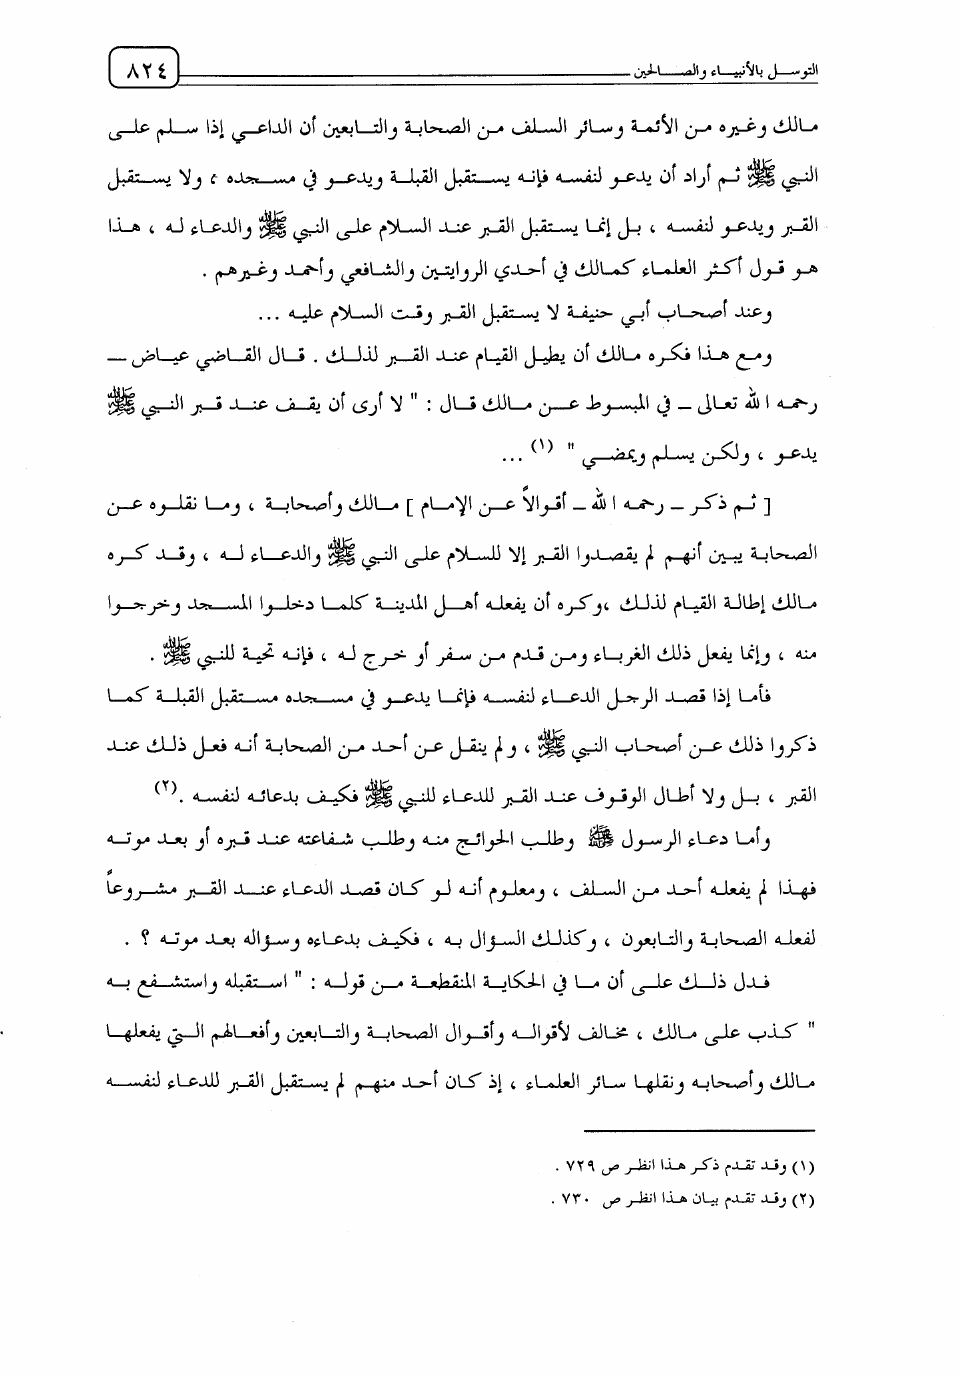 التوسل بالأنبياء والصالحين
٨٢٤
مالك وغيره من الأئمة وسائر السلف من الصحابة والتابعين أن الداعي إذا سلم على
النبي ﷺ ثم أراد أن يدعو لنفسه فإنه يستقبل القبلة ويدعو في مسجده ، ولا يستقبل
القبر ويدعو لنفسه ، بل إنما يستقبل القبر عند السلام على النبي ﷺ والدعاء له ، هذا
هو قول أكثر العلماء كمالك في أحدي الروايتين والشافعي وأحمد وغيرهم .
وعند أصحاب أبي حنيفة لا يستقبل القبر وقت السلام عليه ...
ومع هذا فكره مالك أن يطيل القيام عند القبر لذلك . قال القاضي عياض –
رحمه الله تعالى – في المبسوط عن مالك قال : " لا أرى أن يقف عند قبر النبي ﷺ
يدعو ، ولكن يسلم ويمضي " (١) ...
[ ثم ذكر – رحمه الله – أقوالاً عن الإمام ] مالك وأصحابة ، وما نقلوه عن
الصحابة يبين أنهم لم يقصدوا القبر إلا للسلام على النبي ﷺ والدعاء له ، وقد كره
مالك إطالة القيام لذلك ،وكره أن يفعله أهل المدينة كلما دخلوا المسجد وخرجوا
منه ، وإنما يفعل ذلك الغرباء ومن قدم من سفر أو خرج له ، فإنه تحية للنبي ﷺ .
فأما إذا قصد الرجل الدعاء لنفسه فإنما يدعو في مسجده مستقبل القبلة كما
ذكروا ذلك عن أصحاب النبي ﷺ ، ولم ينقل عن أحد من الصحابة أنه فعل ذلك عند
القبر ، بل ولا أطال الوقوف عند القبر للدعاء للنبي ﷺ فكيف بدعائه لنفسه .(٢)
وأما دعاء الرسول ﷺ وطلب الحوائج منه وطلب شفاعته عند قبره أو بعد موته
فهذا لم يفعله أحد من السلف ، ومعلوم أنه لو كان قصد الدعاء عند القبر مشروعاً
لفعله الصحابة والتابعون ، وكذلك السؤال به ، فكيف بدعاءه وسؤاله بعد موته ؟ .
فدل ذلك على أن ما في الحكاية المنقطعة من قوله : " استقبله واستشفع به
" كذب على مالك ، مخالف لأقواله وأقوال الصحابة والتابعين وأفعالهم التي يفعلها
مالك وأصحابه ونقلها سائر العلماء ، إذ كان أحد منهم لم يستقبل القبر للدعاء لنفسه
(١) وقد تقدم ذكر هذا انظر ص ٧٢٩ .
(٢) وقد تقدم بيان هذا انظر ص ٧٣٠ .